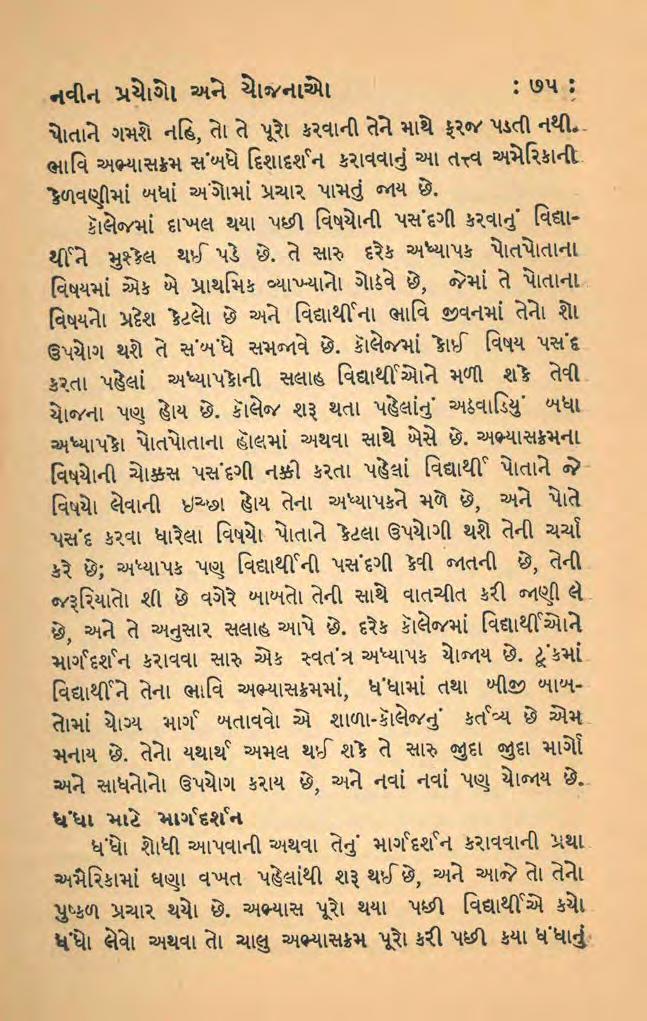 નવીન પ્રયોગો અને યોજનાઓ : ૭૫ :
પોતાને ગમશે નહિ, તો તે પૂરો કરવાની તેને માથે ફરજ પડતી નથી.
ભાવિ અભ્યાસક્રમ સંબધે દિશાદર્શન કરાવવાનું આ તત્ત્વ અમેરિકાની
કેળવણીમાં બધાં અંગોમાં પ્રચાર પામતું જાય છે.
કૉલેજમાં દાખલ થયા પછી વિષયોની પસંદગી કરવાનું વિદ્યા-
ર્થીને મુશ્કેલ થઈ પડે છે. તે સારુ દરેક અધ્યાપક પોતપોતાના
વિષયમાં એક બે પ્રાથમિક વ્યાખ્યાનો ગોઠવે છે, જેમાં તે પોતાના
વિષયનો પ્રદેશ કેટલો છે અને વિદ્યાર્થીના ભાવિ જીવનમાં તેનો શો
ઉપયોગ થશે તે સંબંધે સમજાવે છે. કૉલેજમાં કોઈ વિષય પસંદ
કરતા પહેલાં અધ્યાપકોની સલાહ વિદ્યાર્થીઓને મળી શકે તેવી
યોજના પણ હોય છે. કૉલેજ શરૂ થતા પહેલાંનું અઠવાડિયું બધા
અધ્યાપકો પોતપોતાના હૉલમાં અથવા સાથે બેસે છે. અભ્યાસક્રમના
વિષયોની ચોક્કસ પસંદગી નક્કી કરતા પહેલાં વિદ્યાર્થી પોતાને જે
વિષયો લેવાની ઇચ્છા હોય તેના અધ્યાપકને મળે છે, અને પોતે
પસંદ કરવા ધારેલા વિષયો પોતાને કેટલા ઉપયોગી થશે તેની ચર્ચા
કરે છે; અધ્યાપક પણ વિદ્યાર્થીની પસંદગી કેવી જાતની છે, તેની
જરૂરિયાતો શી છે વગેરે બાબતો તેની સાથે વાતચીત કરી જાણી લે
છે, અને તે અનુસાર સલાહ આપે છે. દરેક કૉલેજમાં વિદ્યાર્થીઓને
માર્ગદર્શન કરાવવા સારુ એક સ્વતંત્ર અધ્યાપક યોજાય છે. ટૂંકમાં
વિદ્યાર્થીને તેના ભાવિ અભ્યાસક્રમમાં, ધંધામાં તથા બીજી બાબ-
તોમાં યોગ્ય માર્ગ બતાવવો એ શાળા-કૉલેજનું કર્તવ્ય છે એમ
મનાય છે. તેનો યથાર્થ અમલ થઈ શકે તે સારુ જુદા જુદા માર્ગો
અને સાધનોનો ઉપયોગ કરાય છે, અને નવાં નવાં પણ યોજાય છે.
ધંધા માટે માર્ગદર્શન
ધંધો શોધી આપવાની અથવા તેનું માર્ગદર્શન કરાવવાની પ્રથા
અમેરિકામાં ઘણા વખત પહેલાંથી શરૂ થઈ છે, અને આજે તો તેનો
પુષ્કળ પ્રચાર થયો છે. અભ્યાસ પૂરો થયા પછી વિદ્યાર્થીએ કયો
ધંધો લેવો અથવા તો ચાલુ અભ્યાસક્રમ પૂરો કરી પછી કયા ધંધાનું